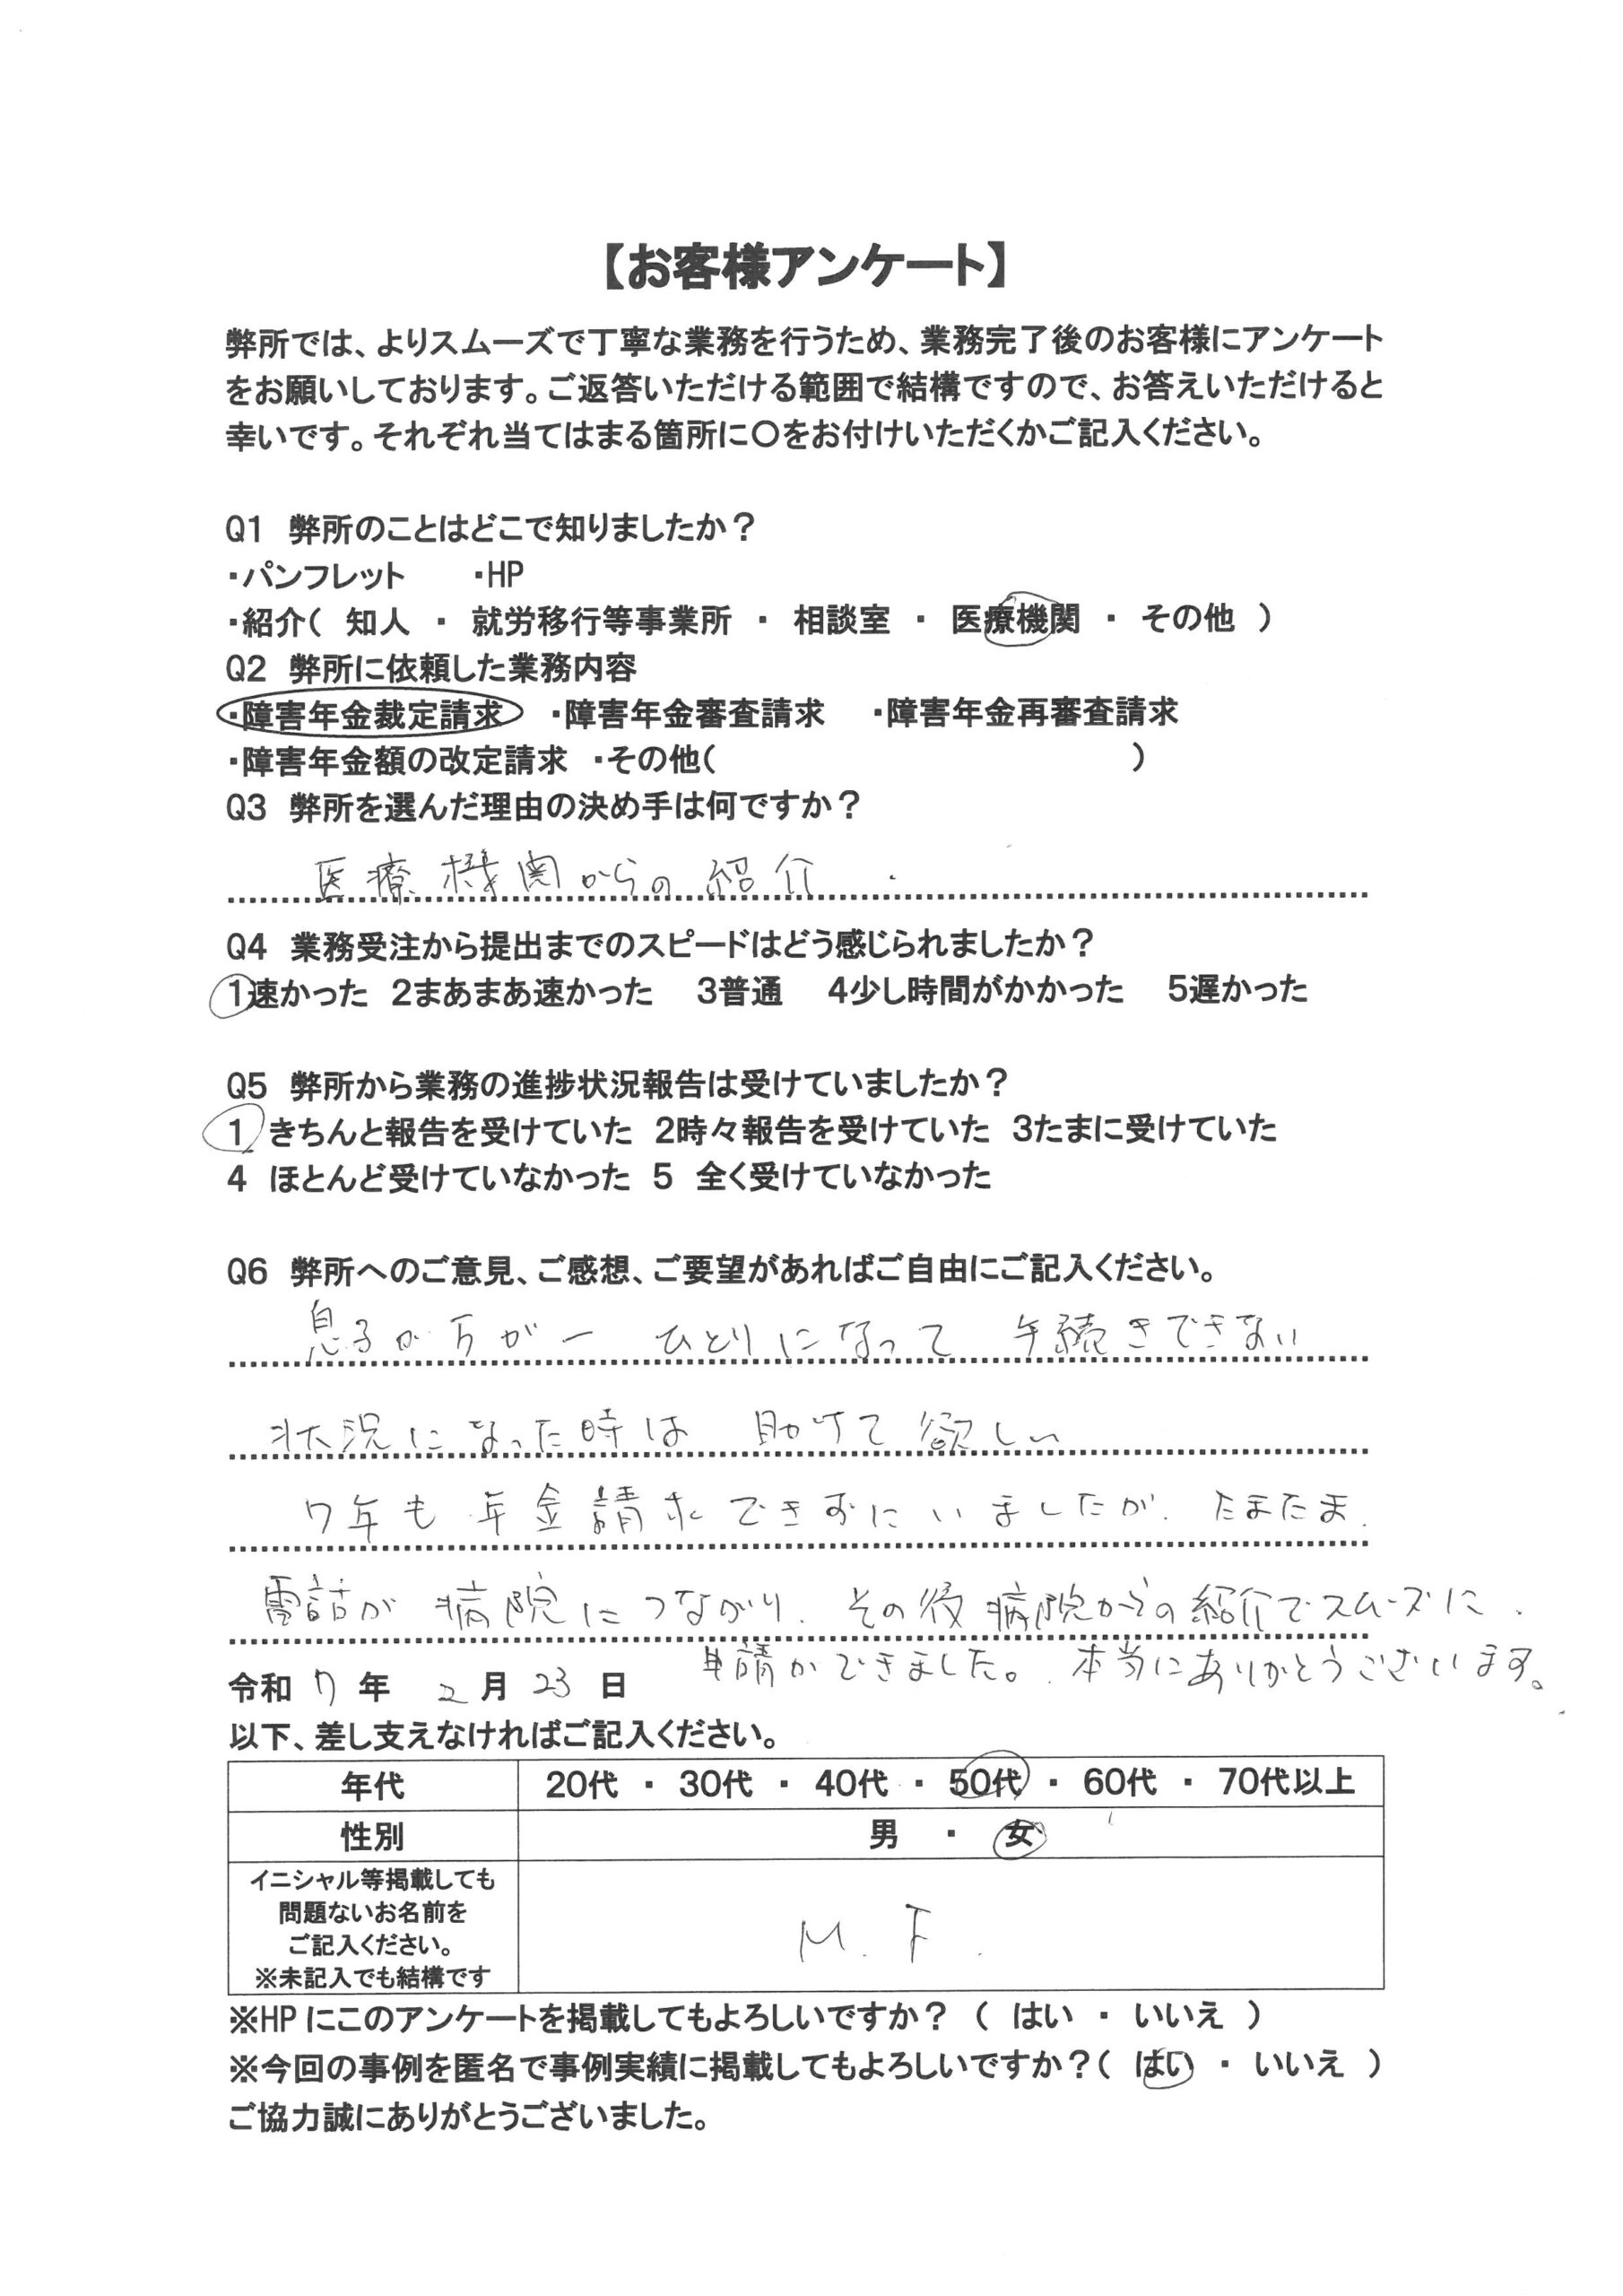 【お客様アンケート】
弊所では、よりスムーズで丁寧な業務を行うため、業務完了後のお客様にアンケート
をお願いしております。ご返答いただける範囲で結構ですので、お答えいただけると
幸いです。それぞれ当てはまる箇所に〇をお付けいただくかご記入ください。
Q1 弊所のことはどこで知りましたか？
・パンフレット ・HP
・紹介（ 知人 ・ 就労移行等事業所 ・ 相談室 ・ 医療機関 ・ その他 ）
Q2 弊所に依頼した業務内容
・障害年金裁定請求 ・障害年金審査請求 ・障害年金再審査請求
・障害年金額の改定請求 ・その他（ ）
Q3 弊所を選んだ理由の決め手は何ですか？
医療機関からの紹介
Q4 業務受注から提出までのスピードはどう感じられましたか？
1速かった 2まあまあ速かった 3普通 4少し時間がかかった 5遅かった
Q5 弊所から業務の進捗状況報告は受けていましたか？
1 きちんと報告を受けていた 2時々報告を受けていた 3たまに受けていた
4 ほとんど受けていなかった 5 全く受けていなかった
Q6 弊所へのご意見、ご感想、ご要望があればご自由にご記入ください。
息子が万が一 ひとりになって 手続きできない
状況になった時は 助けて欲しい
7年も年金請求できずにいましたが、たまたま、
電話が病院につながり、その後病院からの紹介でスムーズに、
申請ができました。本当にありがとうございます。
令和 7 年 2 月 23 日
以下、差し支えなければご記入ください。
年代 20代 ・ 30代 ・ 40代 ・ 50代 ・ 60代 ・ 70代以上
性別 男 ・ 女
イニシャル等掲載しても
問題ないお名前を
ご記入ください。
※未記入でも結構です
M. F.
※HPにこのアンケートを掲載してもよろしいですか？（ はい ・ いいえ ）
※今回の事例を匿名で事例実績に掲載してもよろしいですか？（ はい ・ いいえ ）
ご協力誠にありがとうございました。